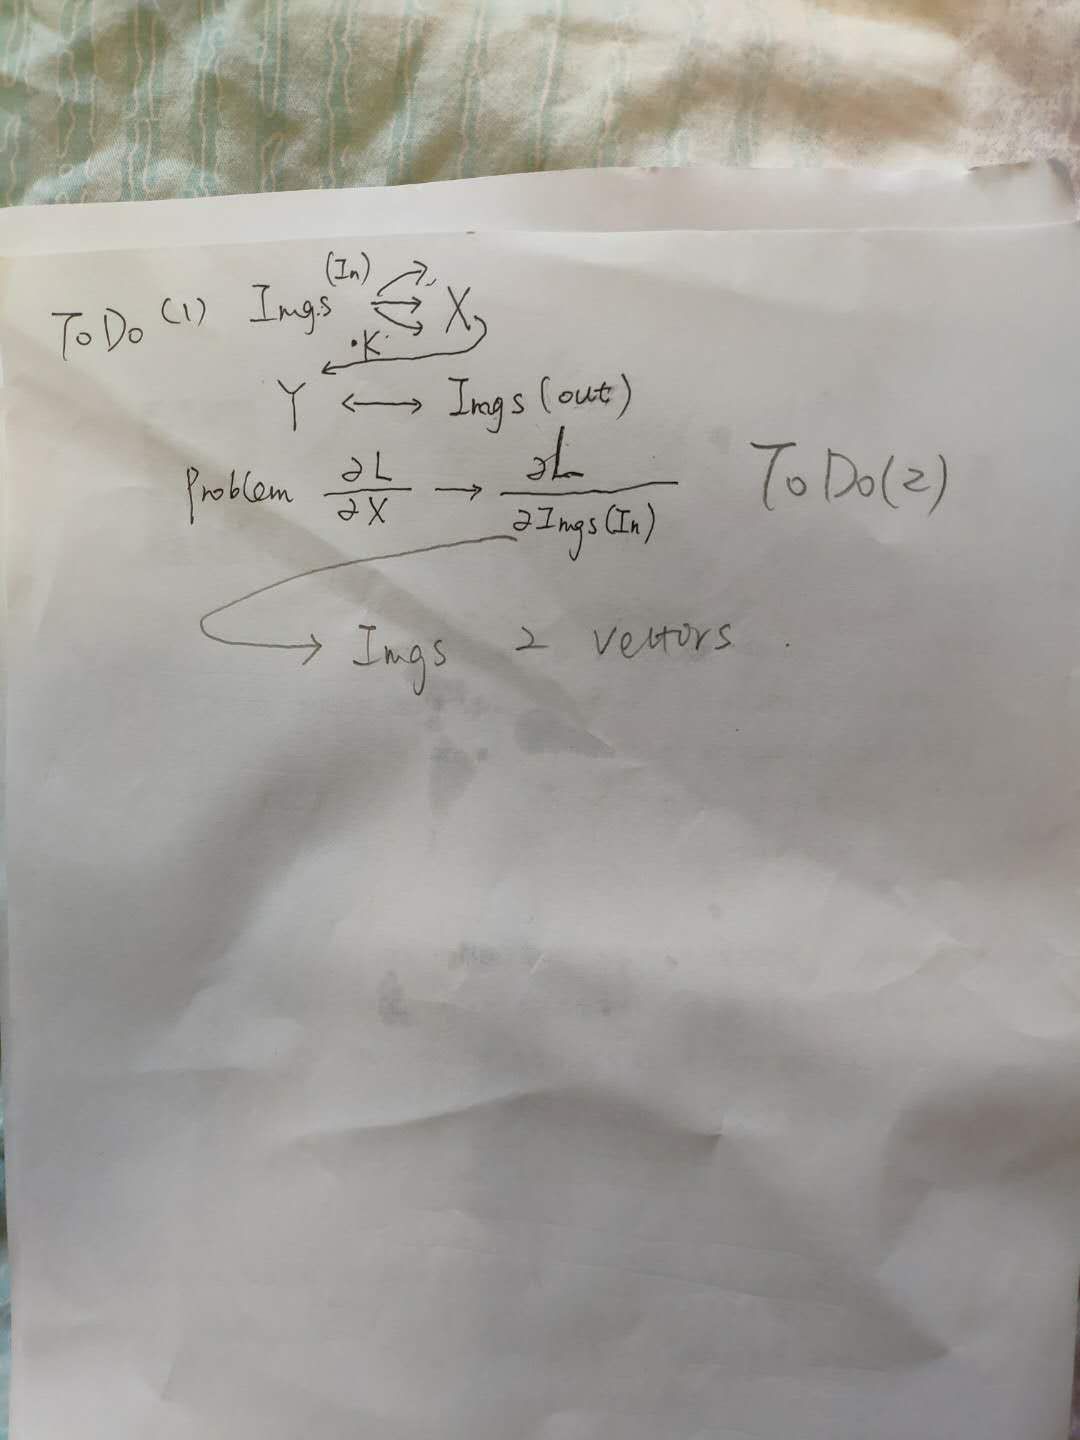 ToDo (1) Imgs (In) → X
·K
Y ↔ Imgs (out)
Problem ∂L/∂X → ∂L/∂Imgs(In) ToDo(2)
→ Imgs 2 vectors.